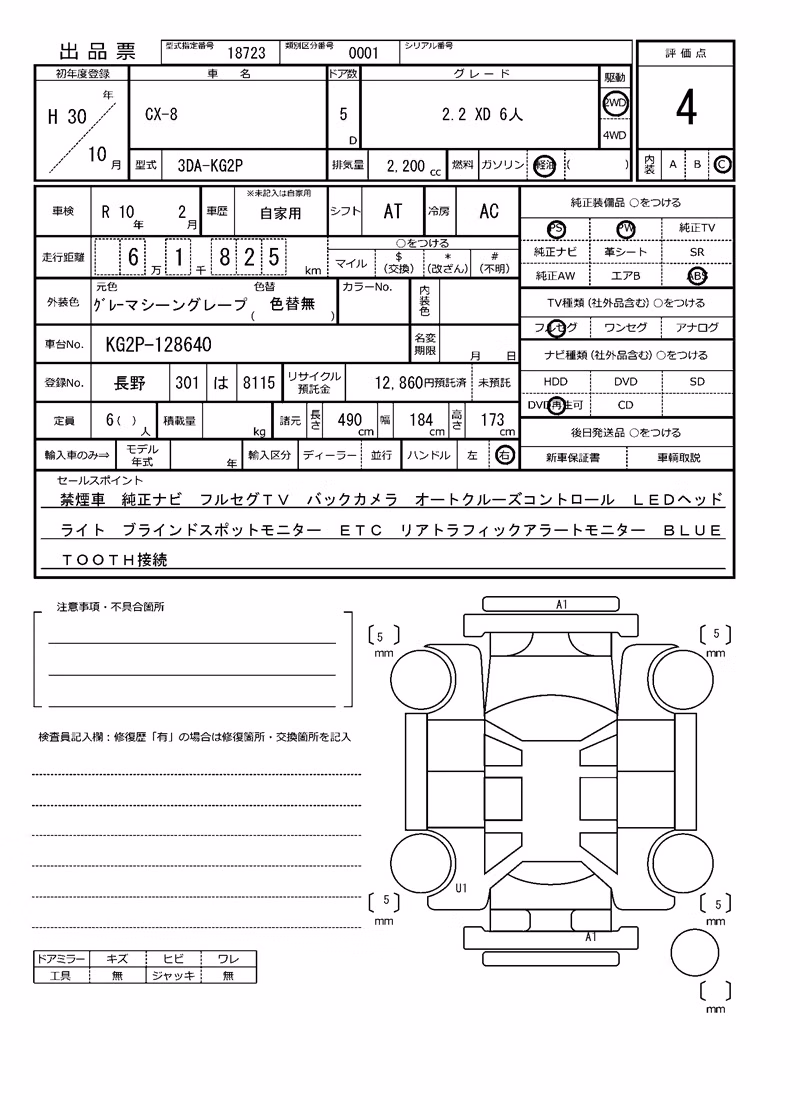 出品票 型式指定番号 18723 類別区分番号 0001 シリアル番号
評価点
4
内装 A B C
初年度登録 車名 ドア数 グレード 駆動
H 30 年 10 月 CX-8 5 D 2.2 XD 6人 2WD
4WD
型式 3DA-KG2P 排気量 2,200 cc 燃料 ガソリン 軽油 ( )
車検 R 10 年 2 月 車歴 ※未記入は自家用 自家用 シフト AT 冷房 AC
走行距離 6 万 1 千 8 2 5 km ○をつける
マイル $ (交換) * (改ざん) # (不明)
外装色 元色 グレーマシーングレープ 色替 ( 色替無 ) カラーNo. 内装色
車台No. KG2P-128640 名変期限 月 日
登録No. 長野 301 は 8115 リサイクル預託金 12,860円預託済 未預託
定員 6( ) 人 積載量 kg 諸元 長さ 490 cm 幅 184 cm 高さ 173 cm
輸入車のみ⇒ モデル年式 年 輸入区分 ディーラー 並行 ハンドル 左 右
純正装備品 ○をつける
PS PW 純正TV
純正ナビ 革シート SR
純正AW エアB ABS
TV種類(社外品含む)○をつける
フルセグ ワンセグ アナログ
ナビ種類(社外品含む)○をつける
HDD DVD SD
DVD再生可 CD
後日発送品 ○をつける
新車保証書 車輌取説
セールスポイント
禁煙車 純正ナビ フルセグTV バックカメラ オートクルーズコントロール LEDヘッド
ライト ブラインドスポットモニター ETC リアトラフィックアラートモニター BLUE
TOOTH接続
注意事項・不具合箇所
検査員記入欄:修復歴「有」の場合は修復箇所・交換箇所を記入
ドアミラー キズ ヒビ ワレ
工具 無 ジャッキ 無
A1
[5] mm
[5] mm
U1
[5] mm
A1
[5] mm
[ ] mm